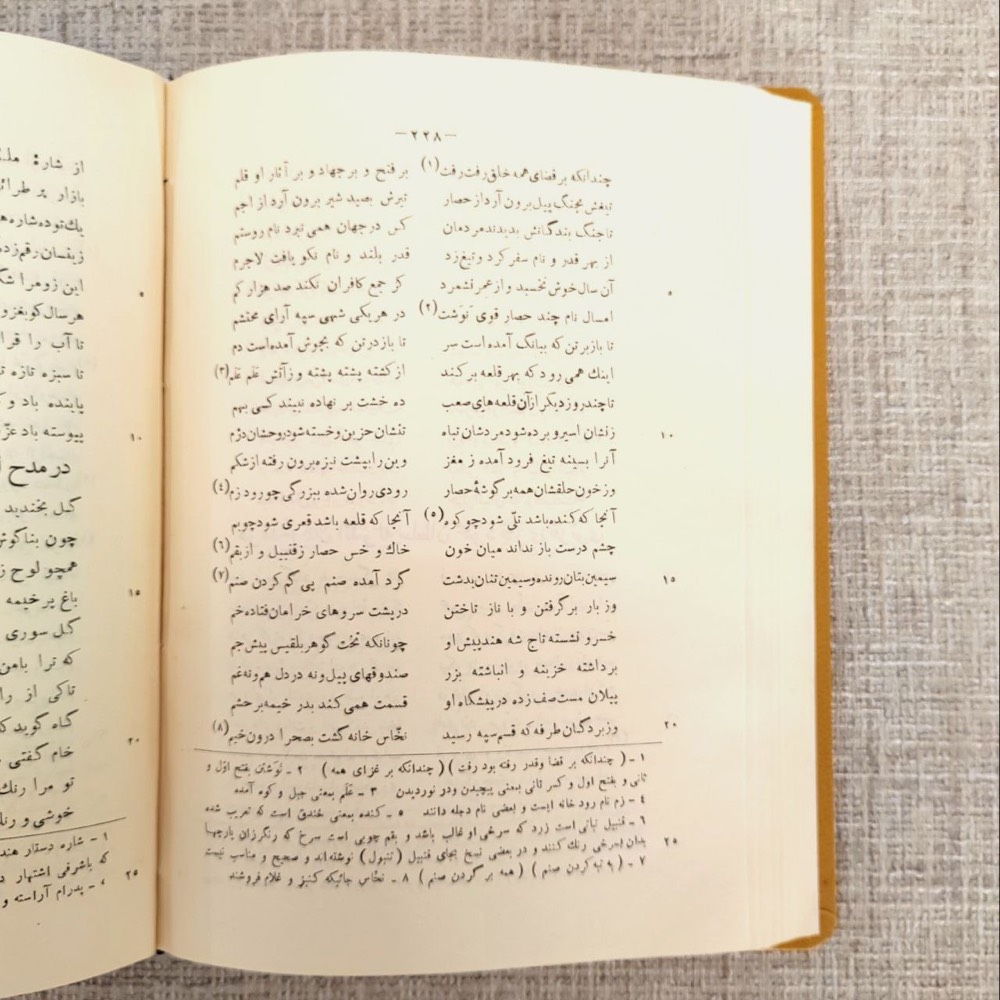 —۲۲۸—
چندانکه بر قضای همه خلق رفت رفت(۱) بر فتح و بر جهاد و بر آثار او قلم
تیغش بجنگ پیل برون آرد از حصار تیرش بصید شیر برون آرد از اجم
تا جنگ بندگانش بدیدند مردمان کس در جهان همی نبرد نام روستم
از بهر قدر و نام سفر کرد و تیغ زد قدر بلند و نام نکو یافت لاجرم
آن سال خوش نخسبد و از عمر نشمرد کز جمع کافران نکند صد هزار کم
۵
امسال نام چند حصار قوی نوشت(۲) در هر یکی شهی سپه آرای محتشم
تا بازبر تن که ببانگ آمده است سر تا باز در تن که بجوش آمده است دم
اینك همی رود که بهر قلعه بر کند از کشته پشته پشته و ز آتش علم علم(۳)
تا چند روز دیگر از آن قلعه‌های صعب ده خشت بر نهاده نبیند کسی بهم
زنشان اسیر و برده شود مردشان تباه تنشان حزین و خسته شود روحشان دژم
۱۰
آنرا بسینه تیغ فرود آمده ز مغز وین را بپشت نیزه برون رفته از شکم
وز خون حلقشان همه بر گوشهٔ حصار رودی روان شده ببزرگی چو رود زم(۴)
آنجا که کنده باشد تلّی شود چو کوه(۵) آنجا که قلعه باشد قعری شود چو یم
چشم درست باز نداند میان خون خاك و خس حصار ز قنبیل و از بقم(۶)
سیمین بتان رونده و سیمین تنان بدشت گرد آمده صنم پی گم کردن صنم(۷)
۱۵
وز بار برگرفتن و با ناز تاختن در پشت سروهای خرامان فتاده خم
خسرو نشسته تاج شه هند پیش او چونانکه تخت گوهر بلقیس پیش جم
برداشته خزینه و انباشته بزر صندوقهای پیل و نه در دل هم و نه غم
پیلان مست صف زده در پیشگاه او قسمت همی کند بدر خیمه بر حشم
وز بردگان طرفه که قسم سپه رسید نخّاس خانه گشت بصحرا درون خیم(۸)
۲۰
۱ - (چندانکه بر قضا و قدر رفته بود رفت) (چندانکه بر غزای همه) ۲ - نوشتن بفتح اول و
ثانی و بفتح اول و کسر ثانی بمعنی پیچیدن و در نوردیدن ۳ - علم بمعنی جبل و کوه آمده
۴ - زم نام رود خانه ایست و بعضی نام دجله دانند ۵ - کنده بمعنی خندق است که تعریب شده
۶ - قنبیل نباتی است زرد که سرخی او غالب باشد و بقم چوبی است سرخ که رنگرزان پارچها
بدان بسرخی رنك کنند و در بعضی نسخ بجای قنبیل (تنبول) نوشته‌اند و صحیح و مناسب نیست
۲۵
۷ - ( کردن صنم) (همه بر گردن صنم) ۸ - نخّاس جائیکه کنیز و غلام فروشند
از شار:
بازار پر
یك توده شاره
زینسان رقم زده
این زو مرا
هر سال کو بغزو
۵
تا آب را
تا سبزه تازه
پاینده باد و
پیوسته باد
۱۰
در مدح
گل بخندید
چون بناگوش
همچو لوح
باغ پر خیمه
۱۵
گل سوری
که ترا با من
تا کی از
گاه گوید
خام گفتی
۲۰
تو مرا رنك
خوشی و
۱ - شاره دستار
که باشرفی اشتهار
۲۵
پدرام آراسته و